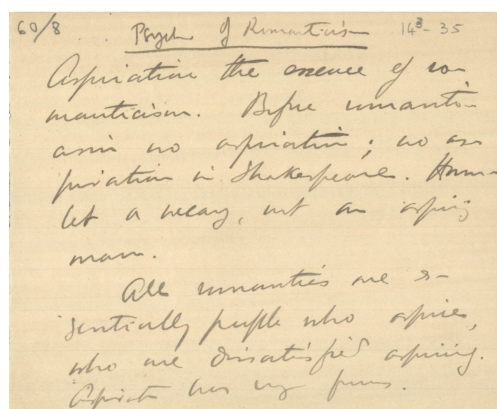 60/8 Psych of Romanticism 14-8-35
Aspiration the essence of ro-
manticism. Before romanti-
cism no aspiration; no as-
piration in Shakespeare. Ham-
let a weary, not an aspiring
man.
All romantics are es-
sentially people who aspire,
who are dissatisfied aspiring.
Aspirat has